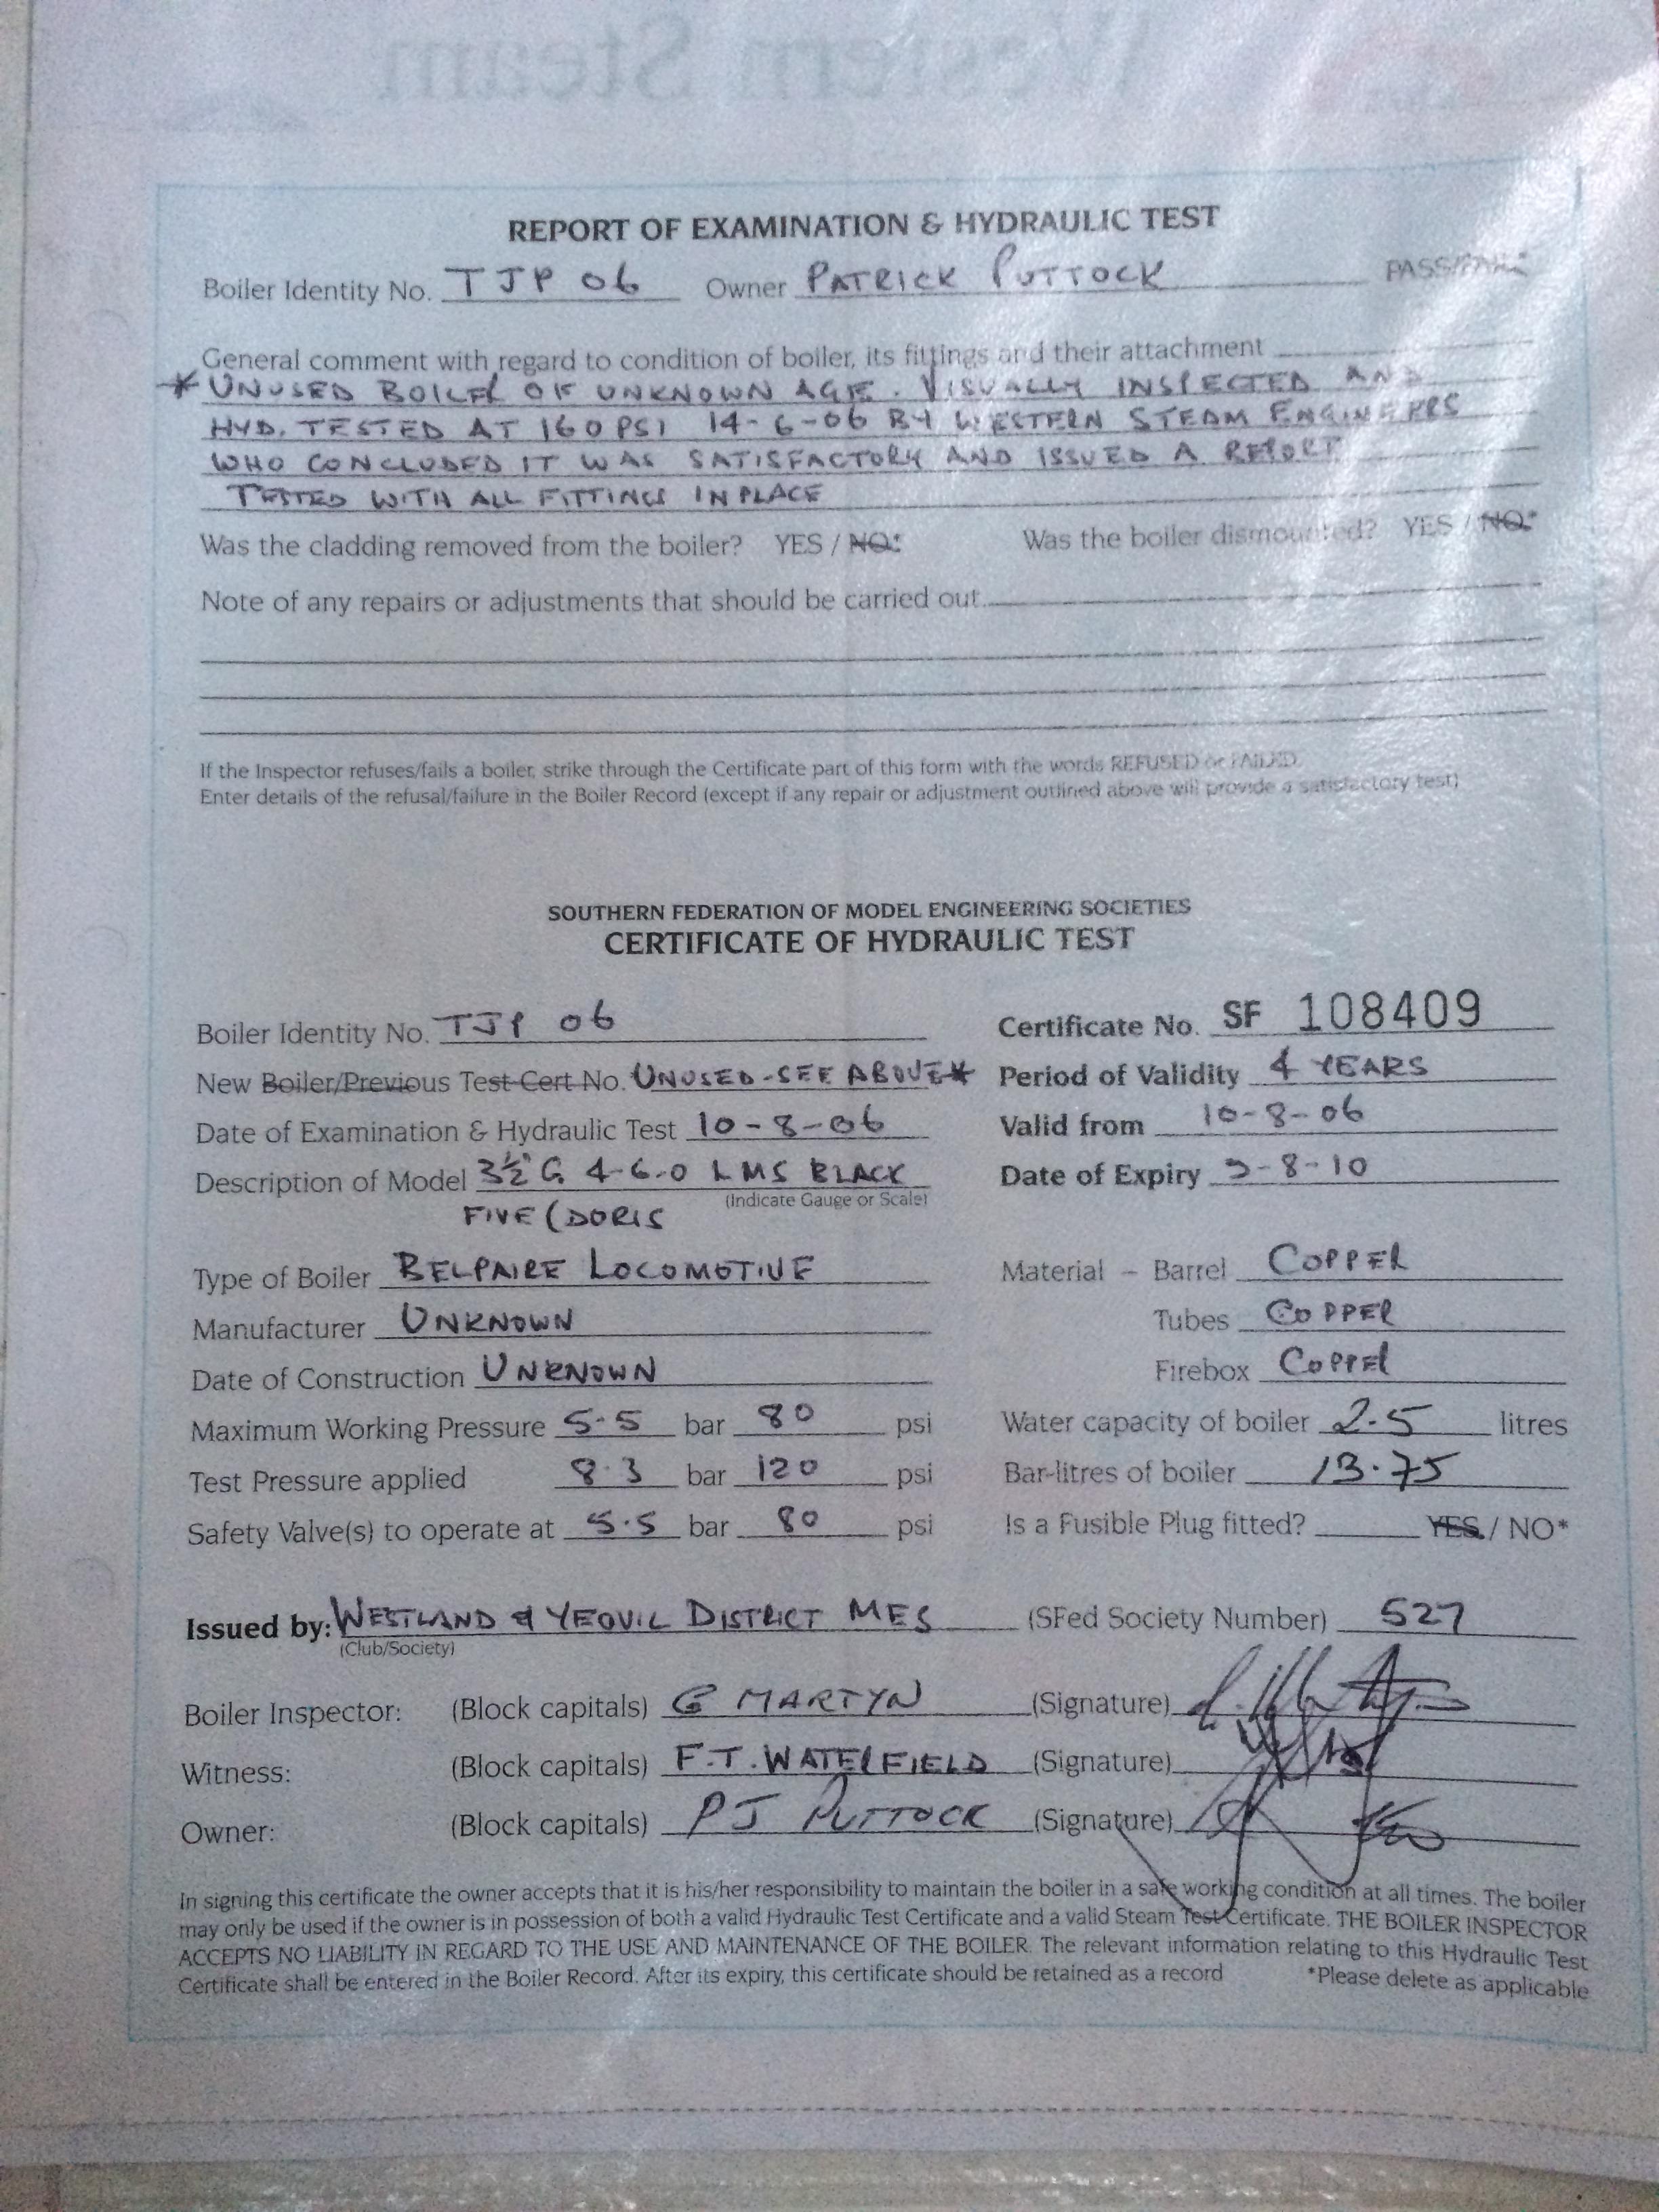 Western Steam
REPORT OF EXAMINATION & HYDRAULIC TEST
Boiler Identity No. TJP 06 Owner PATRICK PUTTOCK PASS/FAIL*
General comment with regard to condition of boiler, its fittings and their attachment
* UNUSED BOILER OF UNKNOWN AGE. VISUALLY INSPECTED AND
HYD. TESTED AT 160 PSI 14-6-06 BY WESTERN STEAM ENGINEERS
WHO CONCLUDED IT WAS SATISFACTORY AND ISSUED A REPORT
TESTED WITH ALL FITTINGS IN PLACE
Was the cladding removed from the boiler? YES / NO* Was the boiler dismounted? YES / NO*
Note of any repairs or adjustments that should be carried out
If the Inspector refuses/fails a boiler, strike through the Certificate part of this form with the words REFUSED or FAILED.
Enter details of the refusal/failure in the Boiler Record (except if any repair or adjustment outlined above will provide a satisfactory test)
SOUTHERN FEDERATION OF MODEL ENGINEERING SOCIETIES
CERTIFICATE OF HYDRAULIC TEST
Boiler Identity No. TJP 06 Certificate No. SF 108409
New Boiler/Previous Test Cert No. UNUSED - SEE ABOVE * Period of Validity 4 YEARS
Date of Examination & Hydraulic Test 10-8-06 Valid from 10-8-06
Description of Model 3½" G. 4-6-0 LMS BLACK Date of Expiry 9-8-10
(Indicate Gauge or Scale)
FIVE (DORIS
Type of Boiler BELPAIRE LOCOMOTIVE Material – Barrel COPPER
Manufacturer UNKNOWN Tubes COPPER
Date of Construction UNKNOWN Firebox COPPER
Maximum Working Pressure 5.5 bar 80 psi Water capacity of boiler 2.5 litres
Test Pressure applied 8.3 bar 120 psi Bar-litres of boiler 13.75
Safety Valve(s) to operate at 5.5 bar 80 psi Is a Fusible Plug fitted? YES / NO*
Issued by: WESTLAND & YEOVIL DISTRICT MES (SFed Society Number) 527
(Club/Society)
Boiler Inspector: (Block capitals) G MARTYN (Signature)
Witness: (Block capitals) F.T. WATERFIELD (Signature)
Owner: (Block capitals) PJ PUTTOCK (Signature)
In signing this certificate the owner accepts that it is his/her responsibility to maintain the boiler in a safe working condition at all times. The boiler
may only be used if the owner is in possession of both a valid Hydraulic Test Certificate and a valid Steam Test Certificate. THE BOILER INSPECTOR
ACCEPTS NO LIABILITY IN REGARD TO THE USE AND MAINTENANCE OF THE BOILER. The relevant information relating to this Hydraulic Test
Certificate shall be entered in the Boiler Record. After its expiry, this certificate should be retained as a record *Please delete as applicable